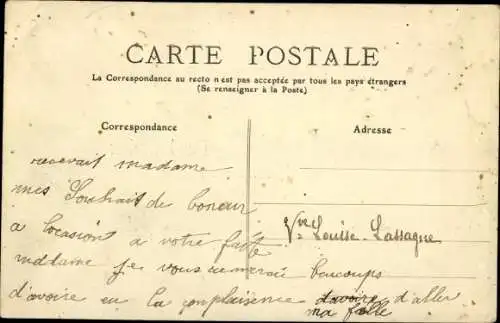 CARTE POSTALE
La Correspondance au recto n'est pas acceptée par tous les pays étrangers
(Se renseigner à la Poste)
Correspondance
Adresse
recevait madame
mes Souhait de boneur
a locasiont a votre faite
madame je vous remerci beaucoups
d'avoire eu la complaisence d'avoire d'aller
ma fille
Vve Louise Lassagne